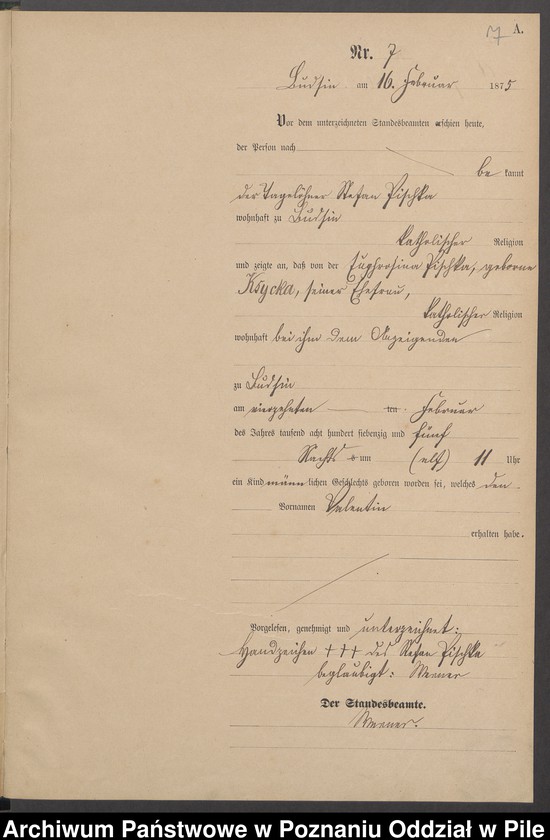 7 A.
Nr. 7
Budsin am 16. Februar 1875
Vor dem unterzeichneten Standesbeamten erschien heute,
der Person nach
be kannt
der Tagelöhner Stefan Pischka
wohnhaft zu Budsin
katholischer Religion
und zeigte an, daß von der Euphrosina Pischka, geborne
Ksycka, seiner Ehefrau,
katholischer Religion
wohnhaft bei ihm dem Anzeigenden
zu Budsin
am vierzehnten ten Februar
des Jahres tausend acht hundert siebenzig und fünf
Nachts um (elf) 11 Uhr
ein Kind männlichen Geschlechts geboren worden sei, welches den
Vornamen Valentin
erhalten habe.
Vorgelesen, genehmigt und unterzeichnet:
Handzeichen +++ des Stefan Pischka
beglaubigt: Werner
Der Standesbeamte.
Werner.
Archiwum Państwowe w Poznaniu Oddział w Pile